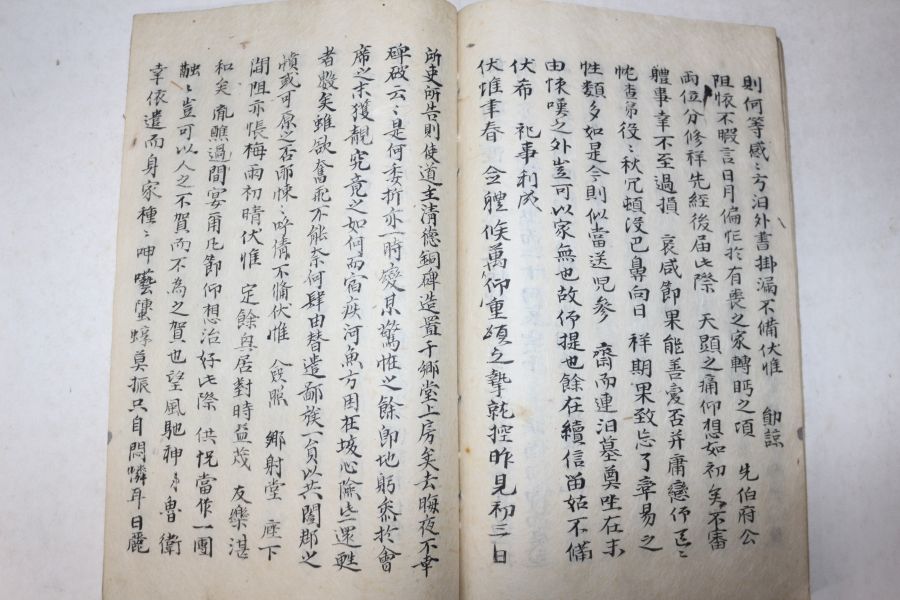 則何等感〻方泊外書掛漏不備伏惟 勛諒
阻懷不暇言日月偏忙於有喪之家轉眄之頃 先伯府公
兩位分修祥先經後届此際 天顯之痛仰想如初矣不審
體事幸不至過損 哀咸節果能善愛否并庸戀伻〻
忱查弟役〻秋冗頓沒巴鼻向日 祥期果致忘了韋易之
性類多如是今則似當送児參 齋而連汨墓奠坐在未
由悚嘆之外豈可以家無也故伻提也餘在續信姑不備
伏希 祀事利成
伏惟聿春 僉體候萬仰重頌之摯就控昨見初三日
所吏所告則使道主清德銅碑造置于鄉堂上房矣去晦夜不幸
碑破云〻是何委折亦一時變某驚恠之餘即地躬叅於會
席之末獲覩究竟之如何而宿疾河魚方困在垓心儉些還甦
者數矣雖欲奮飛不能奈何肆由替造鄙族一員以共闔郡之
憤或可原之否耶悚〻吟倩不備伏惟 僉照 鄉射堂 座下
閽阻亦悵梅雨初晴伏惟 定餘與居對時益茂 友樂湛
和矣胤瞧過間宴甭凡節仰想冶好此際 供悅當作一團
融〻豈可以人之不賀而不為之賀也望風馳神〻魯衛
幸依遣而身家種〻呻囈蘯蜉莫振只自悶憐耳日麗